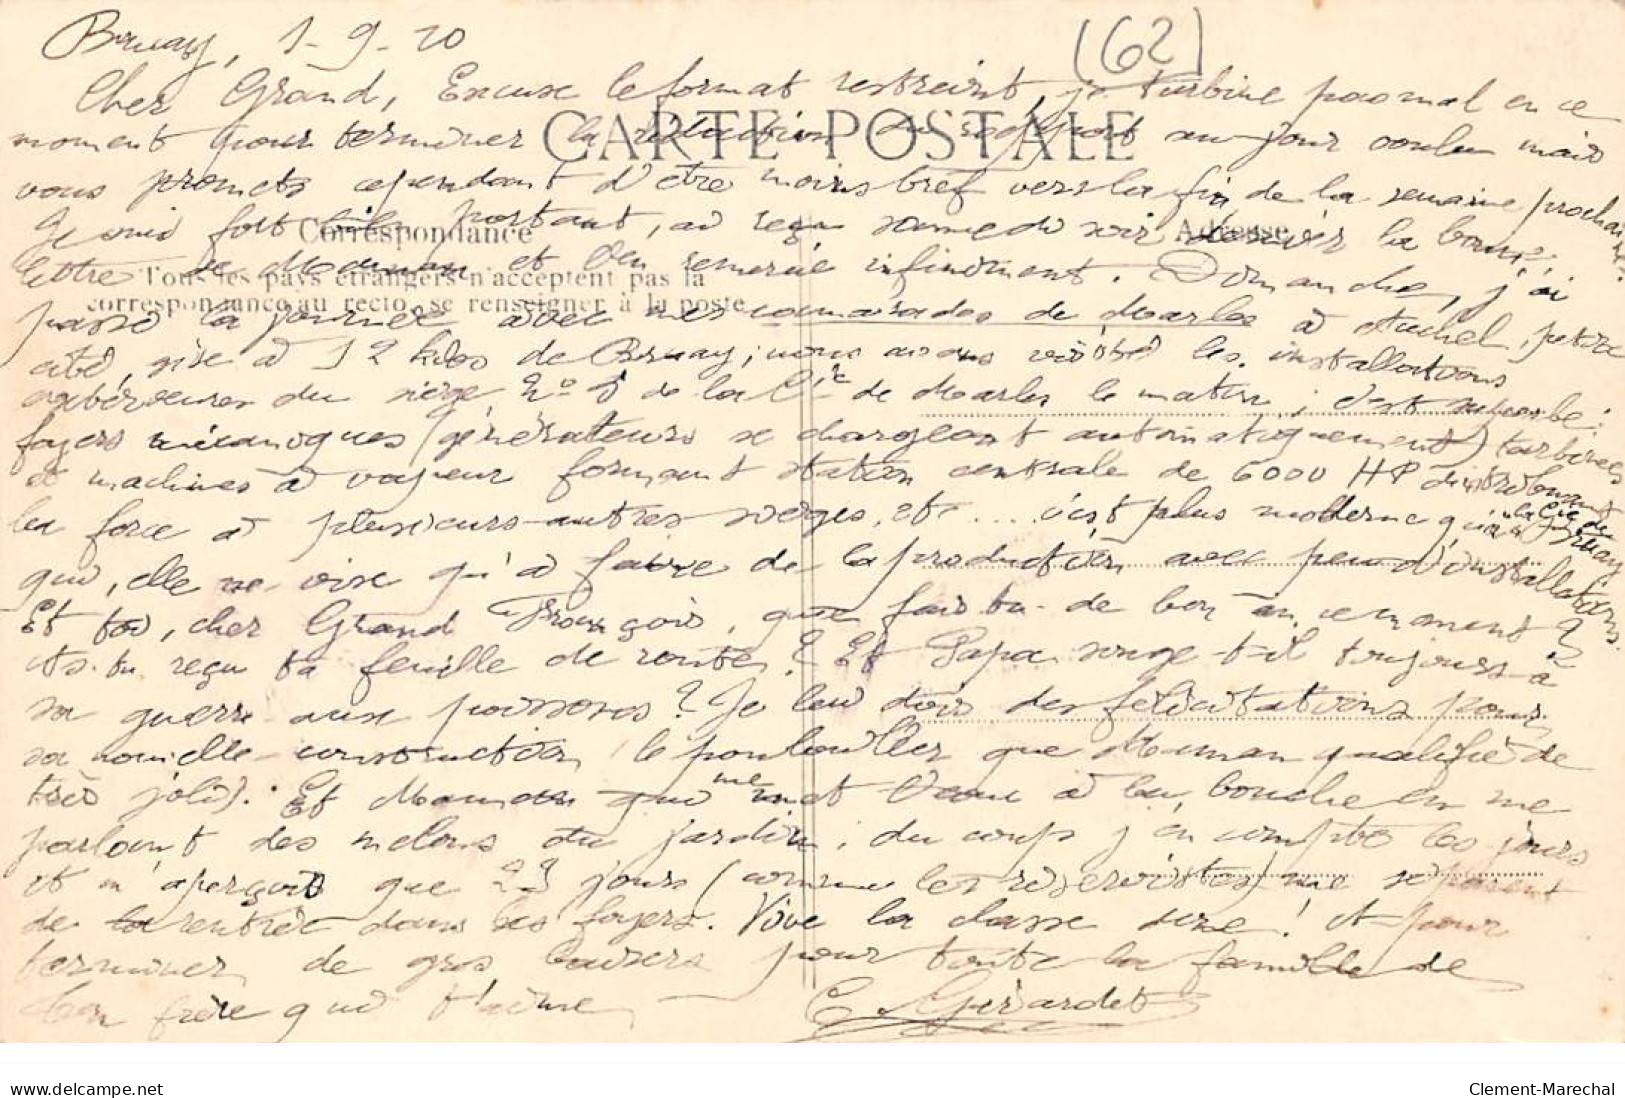 Bruay, 1-9-20
(62)
Cher Grand, Excuse le format restreint, je turbine pas mal en ce
CARTE POSTALE
moment pour terminer la rédaction du rapport au jour voulu mais
vous promets cependant d'être moins bref vers la fin de la semaine prochaine.
Correspondance
Adresse
Je suis fort portant, ai reçu samedi soir la bonne
Tous les pays étrangers n'acceptent pas la
lettre de Maman et l'en remercie infiniment. Dimanche, j'ai
correspondance au recto, se renseigner à la poste
passé la journée avec mes camarades de Marles à Auchel, petite
cité, sise à 12 kilos de Bruay; nous avons visité les installations
extérieures du siège n° 5 de la Cie de Marles le matin; c'est superbe:
foyers mécaniques (générateurs se chargeant automatiquement) turbines
et machines à vapeur formant station centrale de 6000 HP distribuant
la force à plusieurs autres sièges, etc.... c'est plus moderne qu'à la Cie de Bruay
qui, elle ne vise qu'à faire de la production avec peu d'installations.
Et toi, cher Grand François, que fais-tu de bon en ce moment?
As-tu reçu ta feuille de route? Et Papa songe-t-il toujours à
sa guerre aux poissons? Je leur dois des félicitations pour
sa nouvelle construction (le poulailler que Maman qualifie de
très joli). Et Maman qui me met l'eau à la bouche en me
parlant des melons du jardin; du coup j'en compte les jours
et m'aperçois que 23 jours (comme les réservistes) me séparent
de la rentrée dans les foyers. Vive la classe ! et pour
terminer de gros baisers pour toute la famille de
ton frère qui t'aime
C. Girardet
delcampe.net
Clement-Marechal